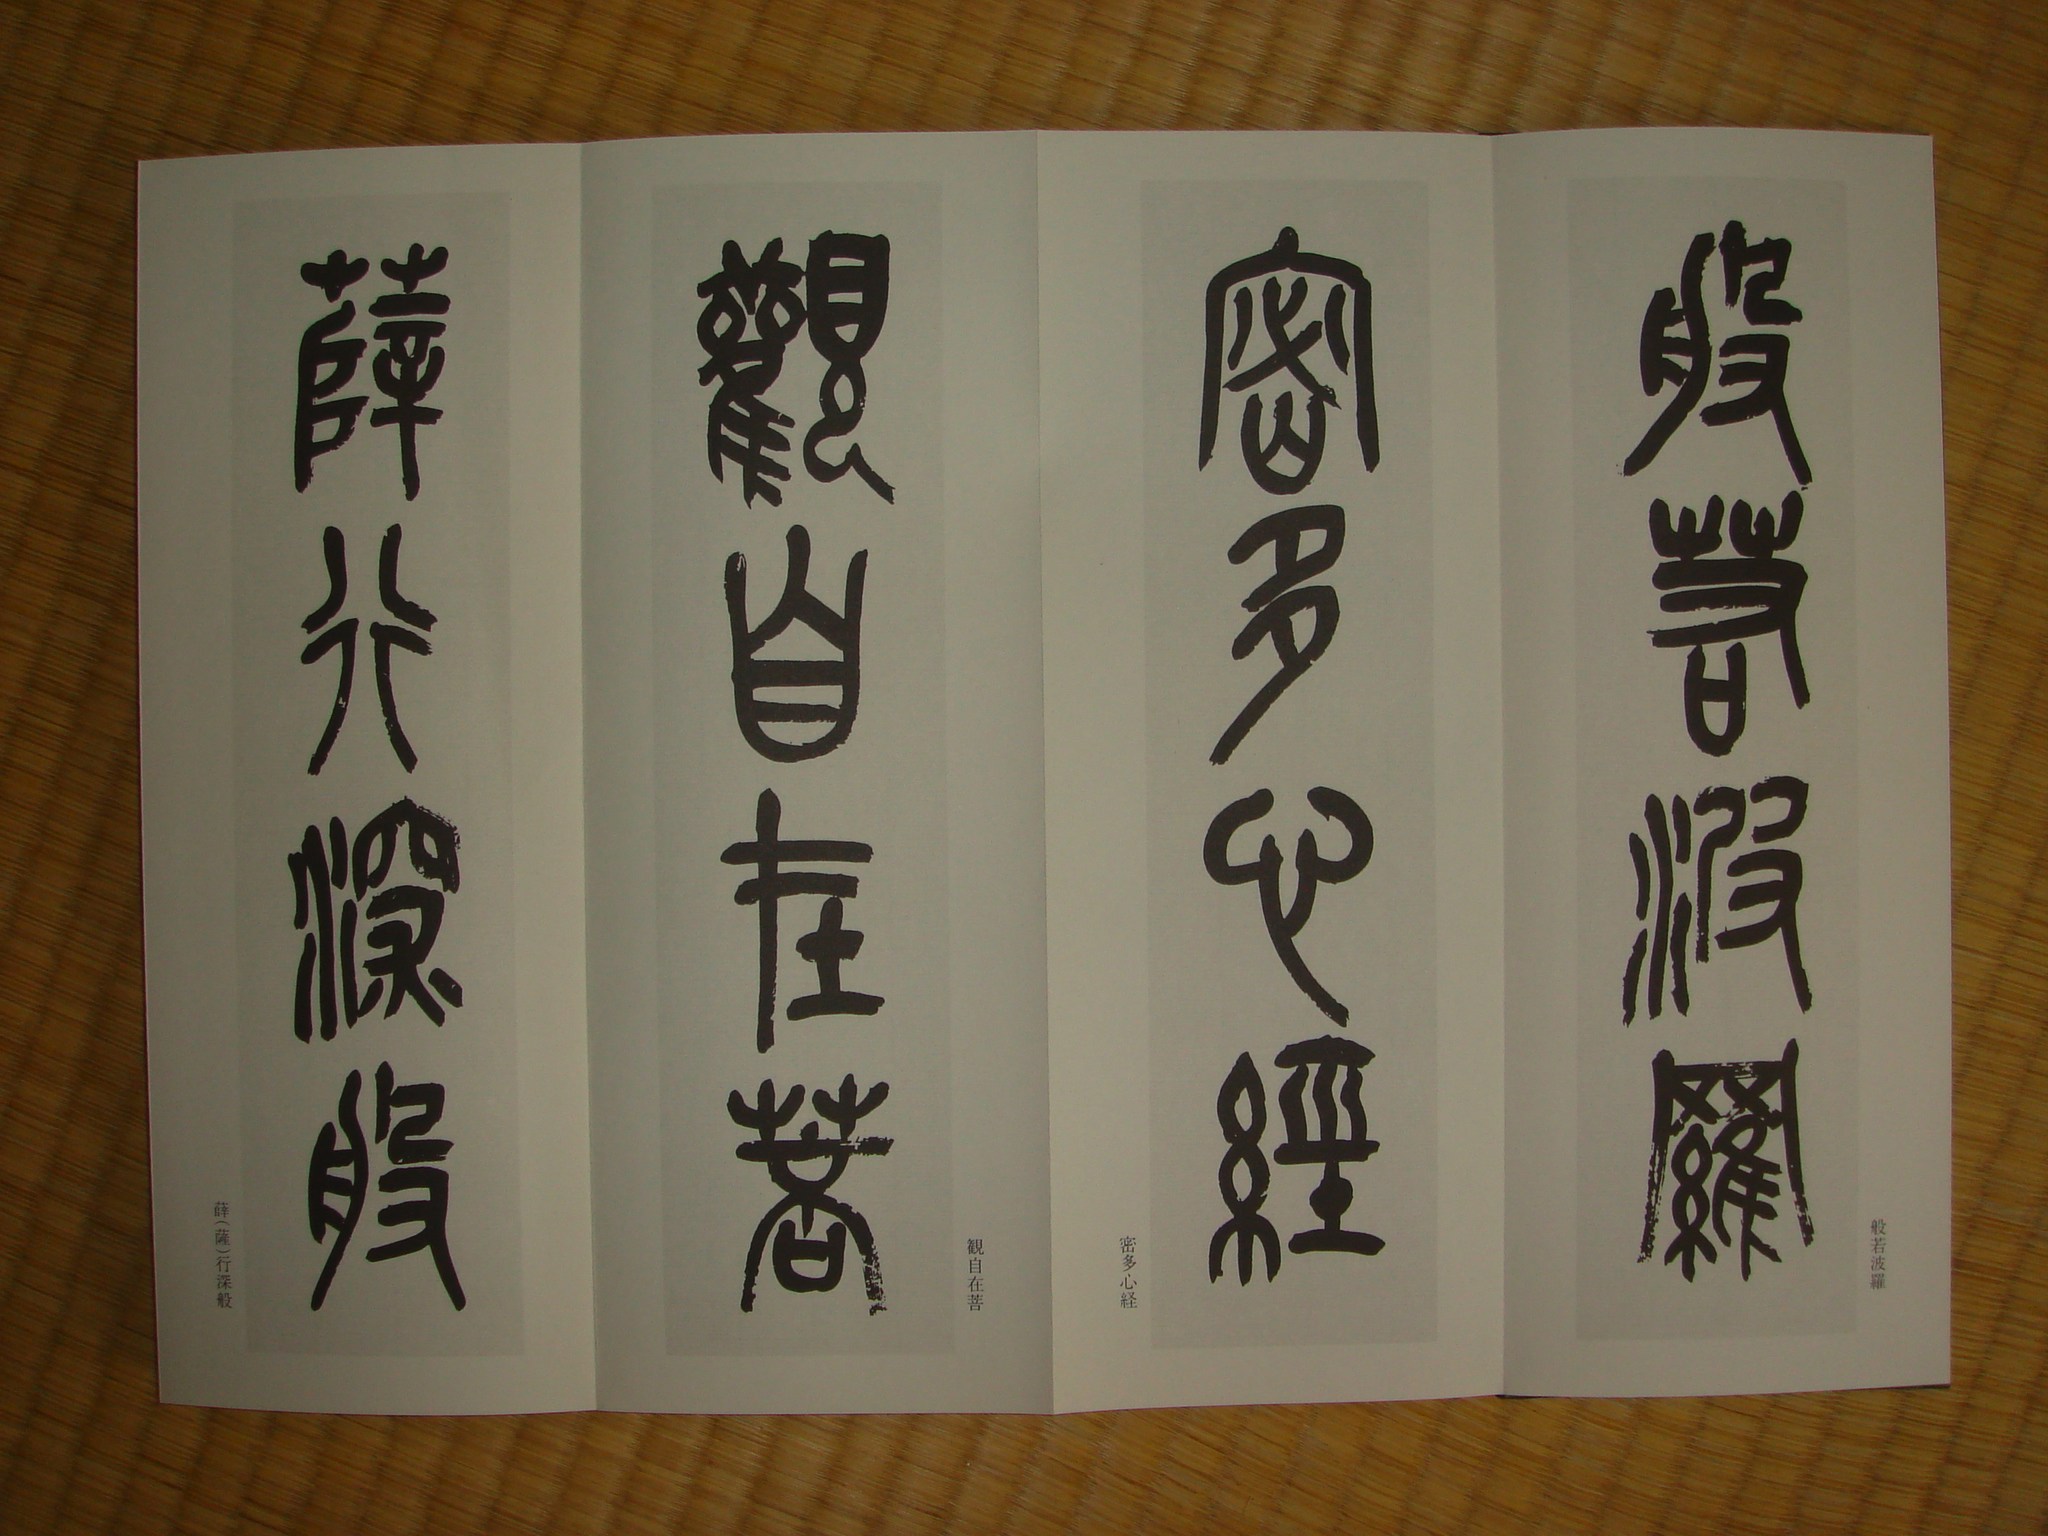 般若波羅
般若波羅
密多心經
密多心経
觀自在菩
観自在菩
薛行深般
薛(薩)行深般